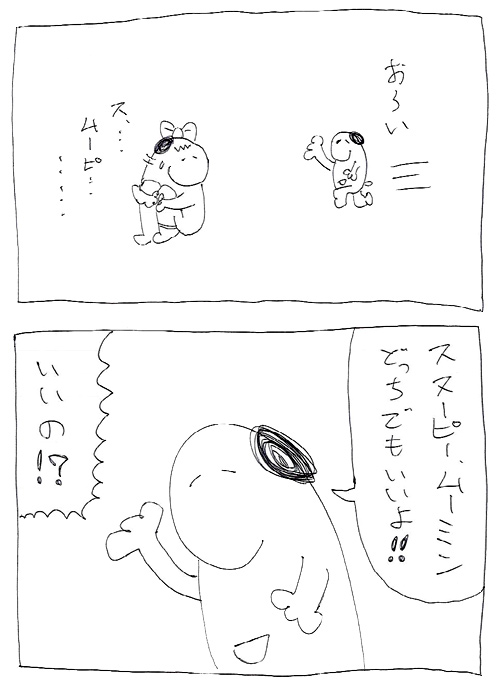 おーい
ス、…
ムーピ…
……
スヌーピー、ムーミン
どっちでもいいよ!!
いいの!?